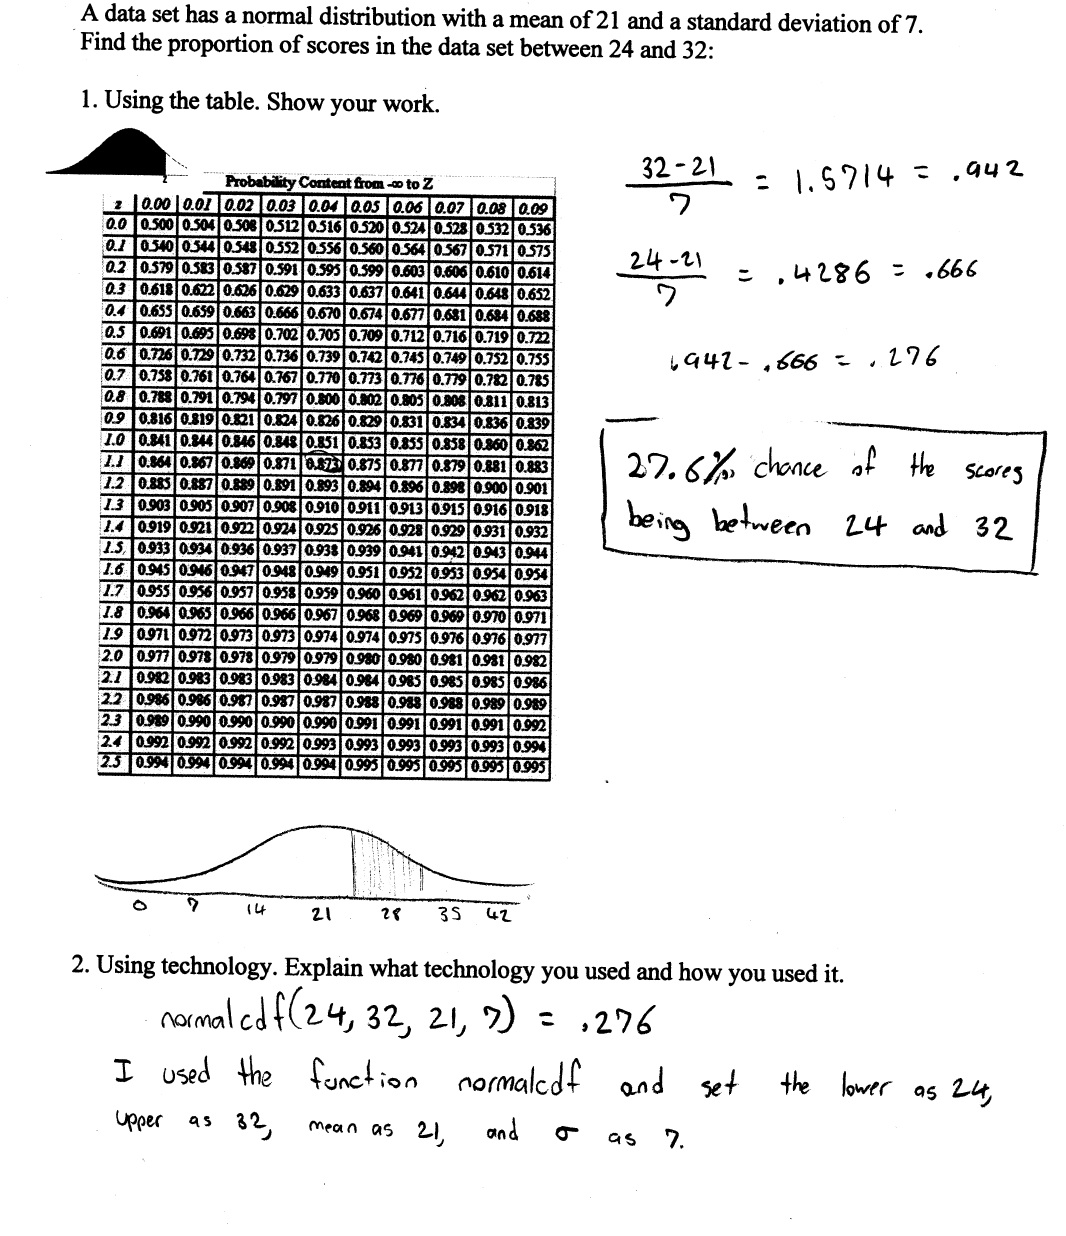 A data set has a normal distribution with a mean of 21 and a standard deviation of 7.
Find the proportion of scores in the data set between 24 and 32:
1. Using the table. Show your work.
z
Probability Content from -∞ to Z
z 0.00 0.01 0.02 0.03 0.04 0.05 0.06 0.07 0.08 0.09
0.0 0.500 0.504 0.508 0.512 0.516 0.520 0.524 0.528 0.532 0.536
0.1 0.540 0.544 0.548 0.552 0.556 0.560 0.564 0.567 0.571 0.575
0.2 0.579 0.583 0.587 0.591 0.595 0.599 0.603 0.606 0.610 0.614
0.3 0.618 0.622 0.626 0.629 0.633 0.637 0.641 0.644 0.648 0.652
0.4 0.655 0.659 0.663 0.666 0.670 0.674 0.677 0.681 0.684 0.688
0.5 0.691 0.695 0.698 0.702 0.705 0.709 0.712 0.716 0.719 0.722
0.6 0.726 0.729 0.732 0.736 0.739 0.742 0.745 0.749 0.752 0.755
0.7 0.758 0.761 0.764 0.767 0.770 0.773 0.776 0.779 0.782 0.785
0.8 0.788 0.791 0.794 0.797 0.800 0.802 0.805 0.808 0.811 0.813
0.9 0.816 0.819 0.821 0.824 0.826 0.829 0.831 0.834 0.836 0.839
1.0 0.841 0.844 0.846 0.848 0.851 0.853 0.855 0.858 0.860 0.862
1.1 0.864 0.867 0.869 0.871 0.873 0.875 0.877 0.879 0.881 0.883
1.2 0.885 0.887 0.889 0.891 0.893 0.894 0.896 0.898 0.900 0.901
1.3 0.903 0.905 0.907 0.908 0.910 0.911 0.913 0.915 0.916 0.918
1.4 0.919 0.921 0.922 0.924 0.925 0.926 0.928 0.929 0.931 0.932
1.5 0.933 0.934 0.936 0.937 0.938 0.939 0.941 0.942 0.943 0.944
1.6 0.945 0.946 0.947 0.948 0.949 0.951 0.952 0.953 0.954 0.954
1.7 0.955 0.956 0.957 0.958 0.959 0.960 0.961 0.962 0.962 0.963
1.8 0.964 0.965 0.966 0.966 0.967 0.968 0.969 0.969 0.970 0.971
1.9 0.971 0.972 0.973 0.973 0.974 0.974 0.975 0.976 0.976 0.977
2.0 0.977 0.978 0.978 0.979 0.979 0.980 0.980 0.981 0.981 0.982
2.1 0.982 0.983 0.983 0.983 0.984 0.984 0.985 0.985 0.985 0.986
2.2 0.986 0.986 0.987 0.987 0.987 0.988 0.988 0.988 0.989 0.989
2.3 0.989 0.990 0.990 0.990 0.990 0.991 0.991 0.991 0.991 0.992
2.4 0.992 0.992 0.992 0.992 0.993 0.993 0.993 0.993 0.993 0.994
2.5 0.994 0.994 0.994 0.994 0.994 0.995 0.995 0.995 0.995 0.995
32-21
7
= 1.5714 = .942
24-21
7
= .4286 = .666
.942 - .666 = .276
27.6% chance of the scores
being between 24 and 32
0 7 14 21 28 35 42
2. Using technology. Explain what technology you used and how you used it.
normalcdf(24, 32, 21, 7) = .276
I used the function normalcdf and set the lower as 24,
upper as 32, mean as 21, and σ as 7.